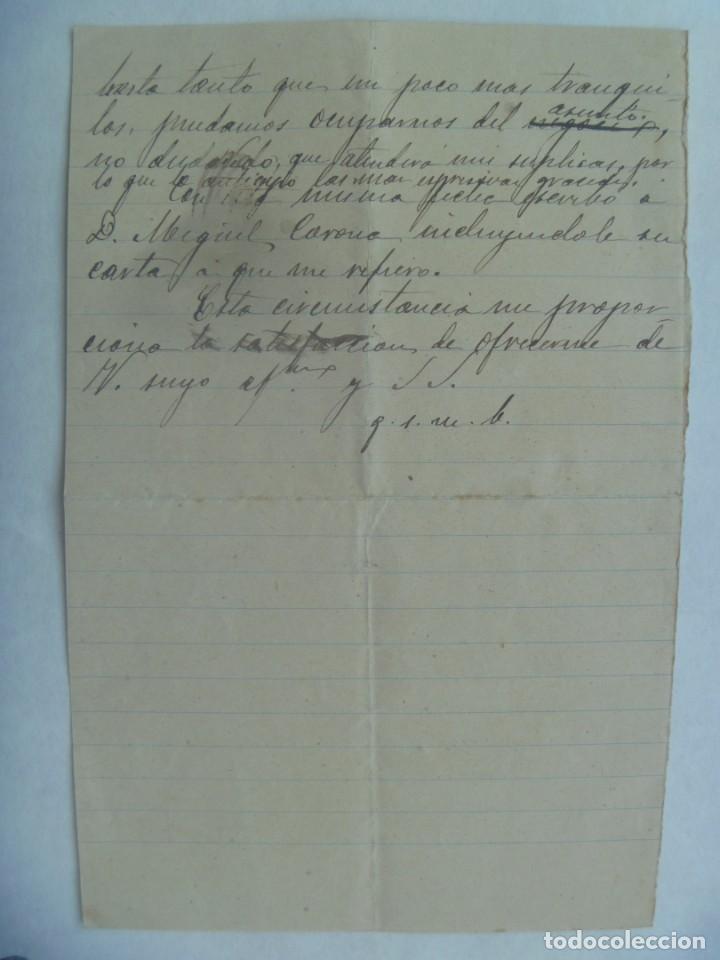 hasta tanto que un poco mas tranqui
los, pudamos ocuparnos del asunto,
no dudando, que atenderá mis suplicas, por
lo que le anticipo las mas espresivas gracias.
Con misma fecha escribo á
D. Miguel Carona incluyendole su
carta á que me refiero.
Esta circunstancia me propor
ciona la satisfaccion de ofrecerme de
V. suyo af.mo y S. S.
q. s. m. b.
todocoleccion.net